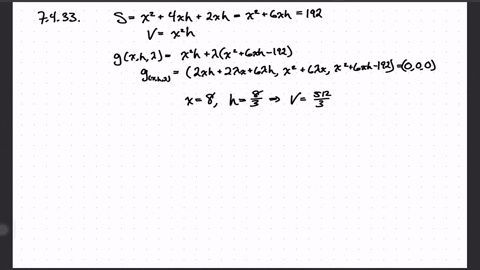 7.4.33. S = x² + 4xh + 2xh = x² + 6xh = 192
V = x²h
g(x,h,λ) = x²h + λ(x² + 6xh - 192)
g(x,h,λ) = (2xh + 2λx + 6λh, x² + 6λx, x² + 6xh - 192) = (0,0,0)
x = 8, h = 8/3 ⇒ V = 512/3